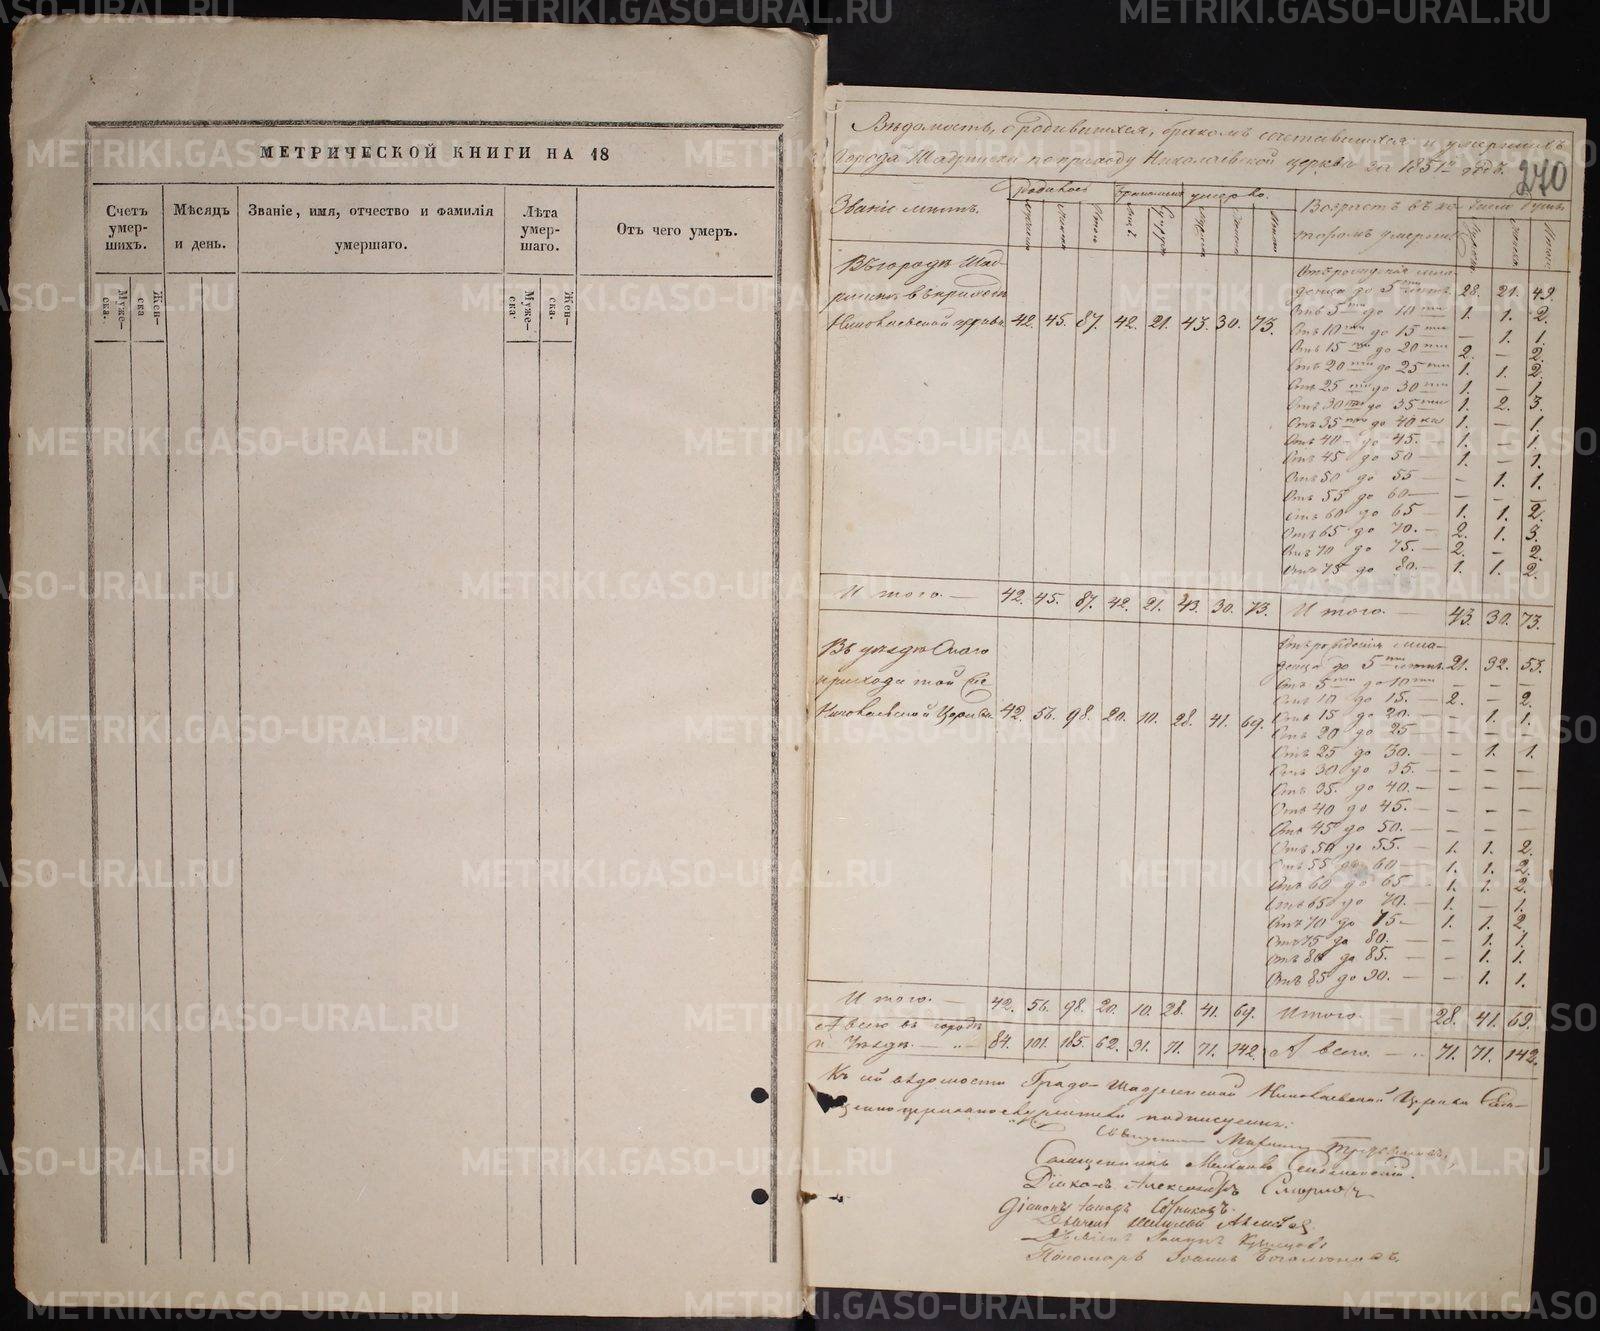 МЕТРИЧЕСКОЙ КНИГИ НА 18
Счетъ умер-шихъ.
Мѣсяцъ и день.
Званіе, имя, отчество и фамилія умершаго.
Лѣта умер-шаго.
Отъ чего умеръ.
Муже-ска.
Жен-ска
Муже-ска.
Жен-ска.
Вѣдомость, о родившихся, бракомъ сочетавшихся и умершихъ
города Шадринска по приходу Николаевской церкви за 1851й годъ.
270
Званіе мѣстъ.
родилось
умерло.
Возрастъ въ ко-
Въ городѣ Шад-
Николаевской церкви 42. 45. 87. 42. 21. 43. 30. 73.
дѣнца до 5 лѣтъ 28. 21. 49.
Отъ 5 до 10 1. 1. 2.
Отъ 10 до 15 — 1. 1.
Отъ 15 до 20 2. — 2.
Отъ 20 до 25 1. 1. 2.
Отъ 25 до 30 1. — 1.
Отъ 30 до 35 1. 2. 3.
Отъ 35 до 40 1. — 1.
Отъ 40 до 45. 1. — 1.
Отъ 45 до 50 — 1. — 1.
Отъ 50 до 55 — — 1. 1.
Отъ 55 до 60 — — — —
Отъ 60 до 65 — 1. 1. 2.
Отъ 65 до 70. — 2. 1. 3.
Отъ 70 до 75. — 2. — 2.
Отъ 75 до 80. — 1. 1. 2.
Итого. — 42. 45. 87. 42. 21. 43. 30. 73. Итого. — 43. 30. 73.
Въ уѣздѣ Онаго
прихода той же
Николаевской Церкви 42. 56. 98. 20. 10. 28. 41. 69.
Отъ рожденія мла-
дѣнца до 5 лѣтъ 21. 32. 53.
Отъ 5 до 10 — — —
Отъ 10 до 15. — 2. — 2.
Отъ 15 до 20. — — 1. 1.
Отъ 20 до 25 — — —
Отъ 25 до 30. — — 1. 1.
Отъ 30 до 35. — — — —
Отъ 35. до 40. — — — —
Отъ 40 до 45. — — — —
Отъ 45 до 50. — — — —
Отъ 50 до 55. — 1. 1. 2.
Отъ 55 до 60 1. 1. 2.
Отъ 60 до 65 — 1. 1. 2.
Отъ 65 до 70. — 1. — 1.
Отъ 70 до 75 — 1. 1. 2.
Отъ 75 до 80. — — 1. 1.
Отъ 80 до 85. — — 1. 1.
Отъ 85 до 90. — — 1. 1.
Итого. — 42. 56. 98. 20. 10. 28. 41. 69. Итого. — 28. 41. 69.
А всего въ городѣ
и Уѣздѣ. — 84. 101. 185. 62. 31. 71. 71. 142. А всего. — 71. 71. 142.
Къ сей вѣдомости Градо-Шадринской Николаевской Церкви Свя-
щенноцерковнослужители подписуемъ:
Священникъ
Діаконъ Александръ Смирновъ
Діаконъ Іаковъ Сотниковъ.
Пономарь Іоаннъ
METRIKI.GASO-URAL.RU